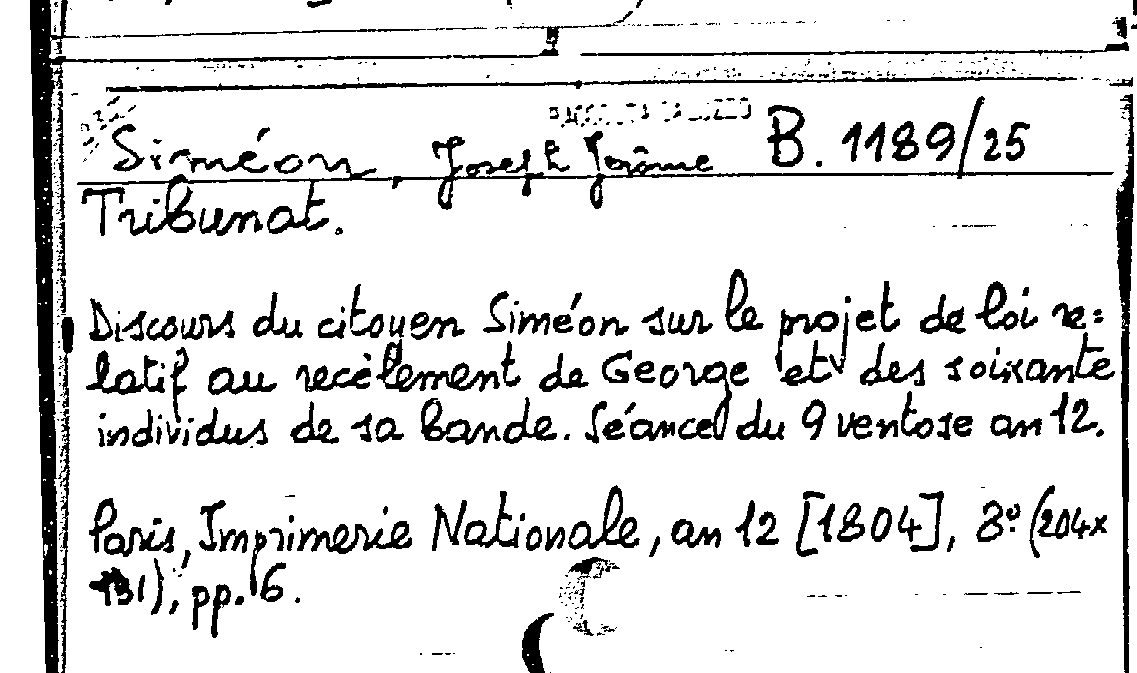 Siméon, Joseph Jérôme B. 1189/25
Tribunat.
Discours du citoyen Siméon sur le projet de loi re=
latif au recèlement de George et des soixante
individus de sa bande. Séance du 9 ventose an 12.
Paris, Imprimerie Nationale, an 12 [1804], 8º (204x
131), pp. 6.